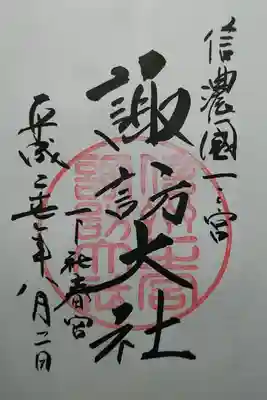 信濃國一之宮
諏訪大社
下社春宮
平成二十七年八月二日